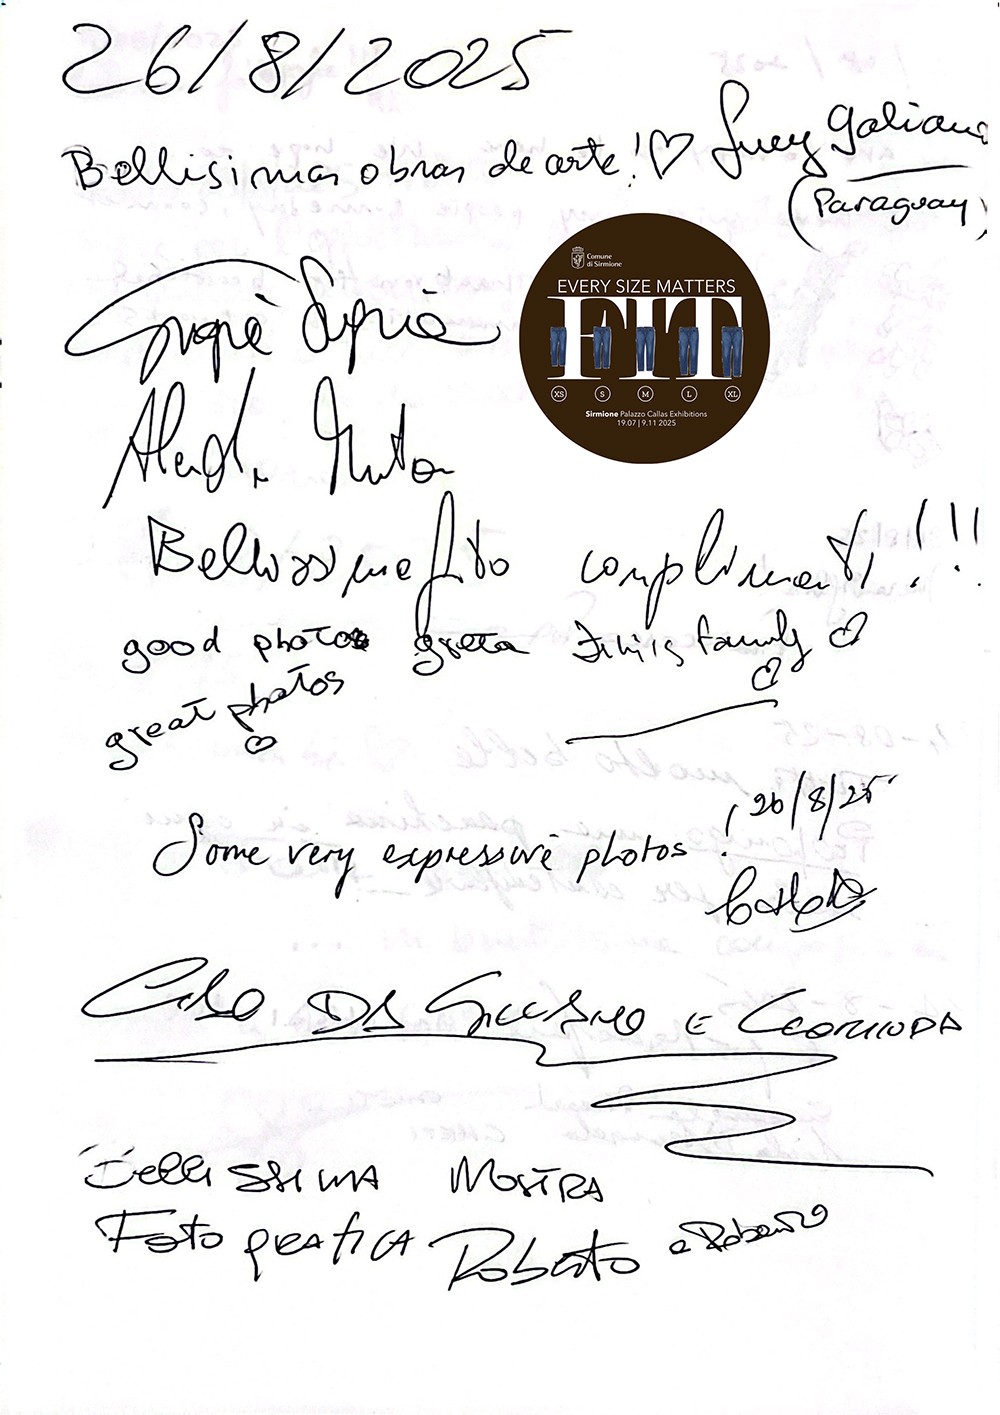 26/8/2025
Bellisimas obras de arte! ♡ Lucy Galiano
(Paraguay)
Comune
di Sirmione
EVERY SIZE MATTERS
FIT
XS S M L XL
Sirmione Palazzo Callas Exhibitions
19.07 | 9.11 2025
Bellissime foto complimenti!!!
good photos greta family
great photos
Some very expressive photos! 26/8/25
DA E
BELLISSIMA MOSTRA
FotoGRAFICA Roberto e Roberto